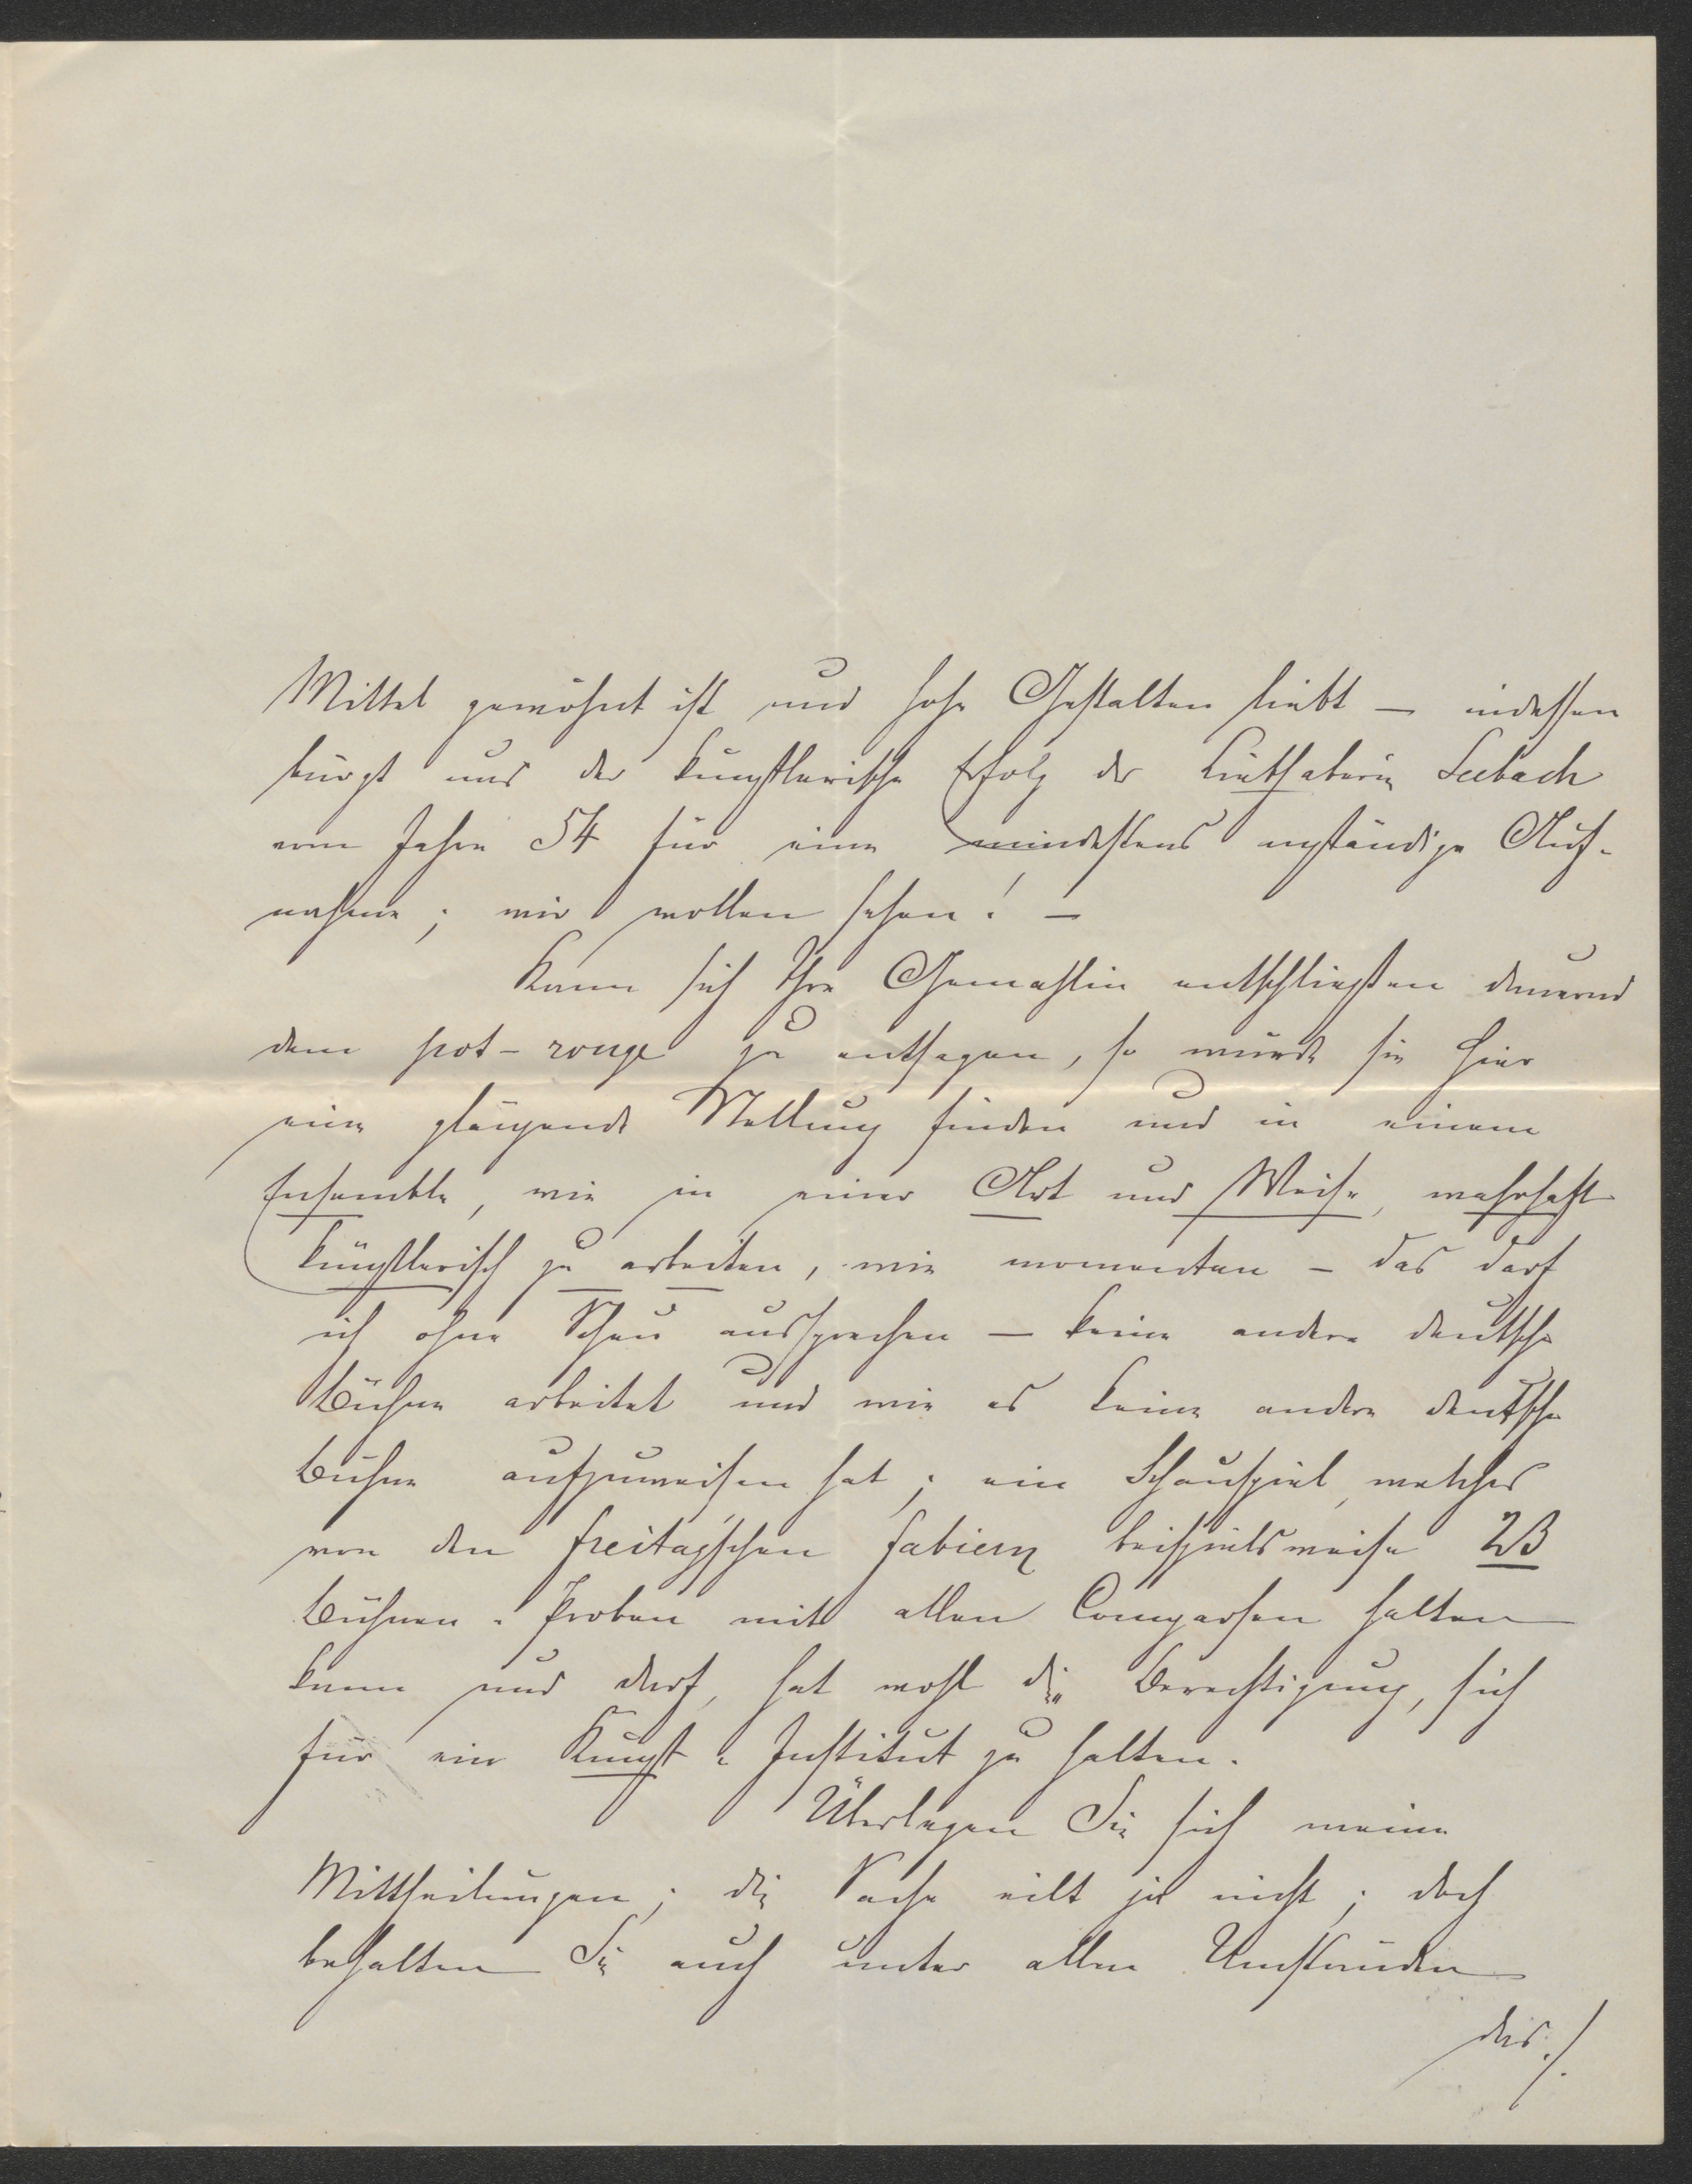 Mittel gewöhnt ist und hohe Gestalten liebt — indessen
bürgt uns der künstlerische Erfolg der Liebhaberin Seebach
vom Jahre 54 für eine mindestens anständige Auf-
nahme; wir wollen sehen! —
Kann sich Ihre Gemahlin entschließen dauernd
dem pot-rouge zu entsagen, so würde sie hier
eine glänzende Stellung finden und in einem
Ensemble, wie in einer Art und Weise, wahrhaft
künstlerisch zu arbeiten, wie momentan – das darf
ich ohne Scheu aussprechen — keine andere deutsche
Bühne arbeitet und wie es keine andere deutsche
Bühne aufzuweisen hat; ein Schauspiel, welches
von den Freitag'schen Fabiern beispielsweise 23
Bühnen-Proben mit allen Comparsen halten
kann und darf, hat wohl die Berechtigung, sich
für ein Kunst-Institut zu halten.
Überlegen Sie sich meine
Mittheilungen; die Sache eilt ja nicht; doch
behalten Sie auch unter allen Umständen
das ./.